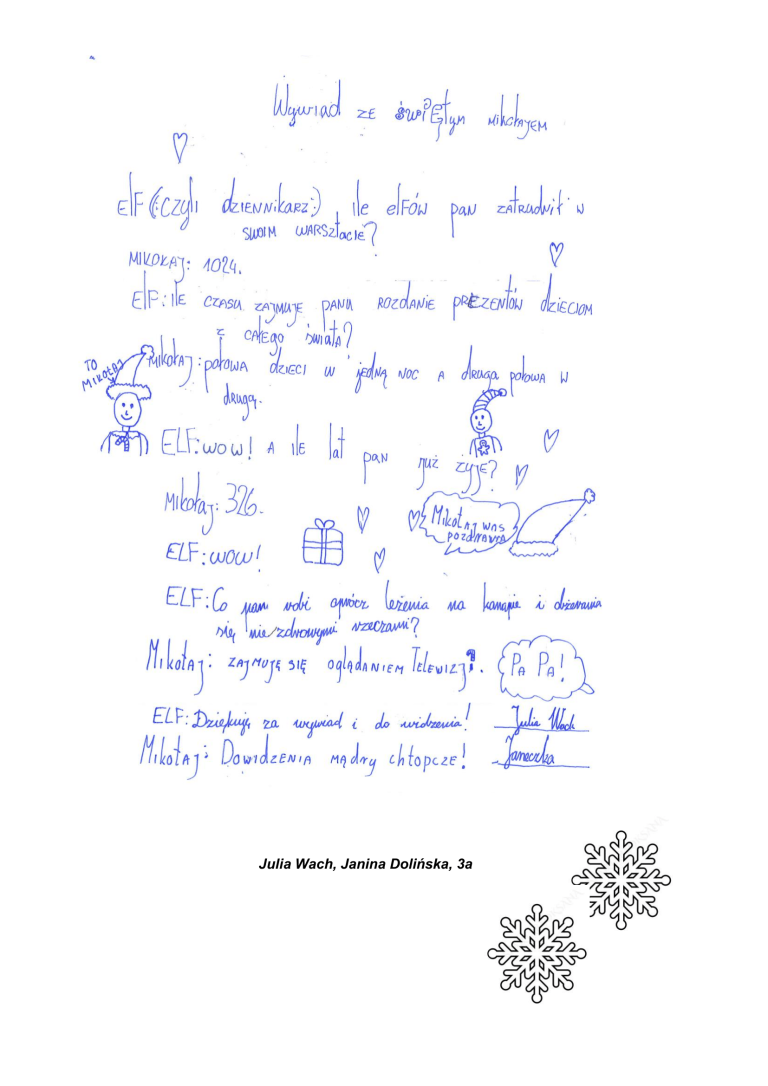 Wywiad ze świętym Mikołajem
Elf (:czyli dziennikarz:) ile elfów pan zatrudnił w
swoim warsztacie?
Mikołaj: 1024.
Elf: ile czasu zajmuje panu rozdanie prezentów dzieciom
z całego świata?
TO
MIKOŁAJ
Mikołaj: połowa dzieci w jedną noc a druga połowa w
drugą.
ELF: wow! A ile lat pan już żyje?
Mikołaj: 326.
Mikołaj was
pozdrawia
ELF: wow!
ELF: Co pan robi oprócz leżenia na kanapie i obżerania
się niezdrowymi rzeczami?
Mikołaj: zajmuję się oglądaniem Telewizji.
PA PA!
ELF: Dziękuję za wywiad i do widzenia!
Julia Wach
Mikołaj: Dowidzenia mądry chłopcze!
Janeczka
Julia Wach, Janina Dolińska, 3a